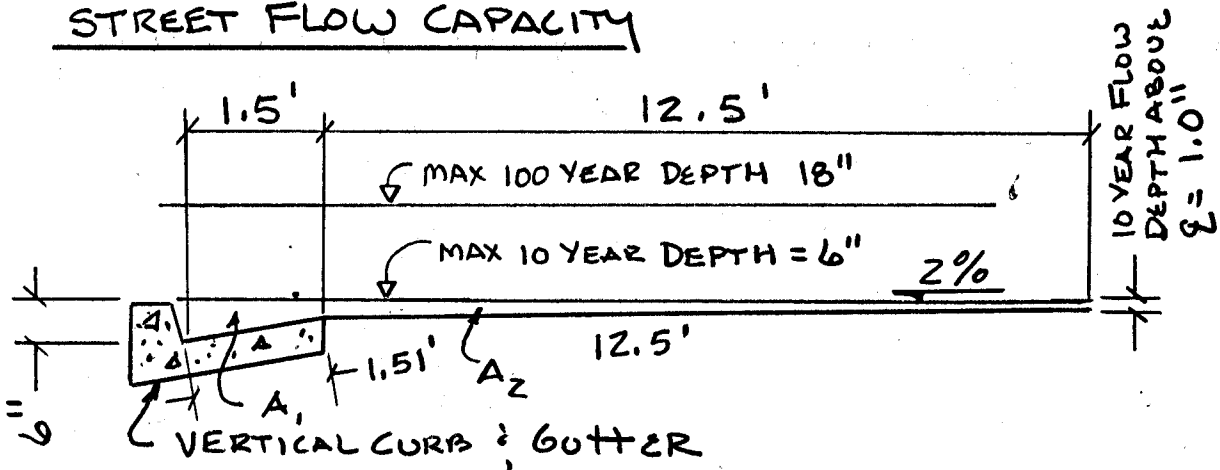 STREET FLOW CAPACITY
1.5'
12.5'
10 YEAR FLOW
DEPTH ABOVE
℄ = 1.0"
MAX 100 YEAR DEPTH 18"
MAX 10 YEAR DEPTH = 6"
2%
12.5'
1.51'
A2
A1
6"
VERTICAL CURB & GUTTER